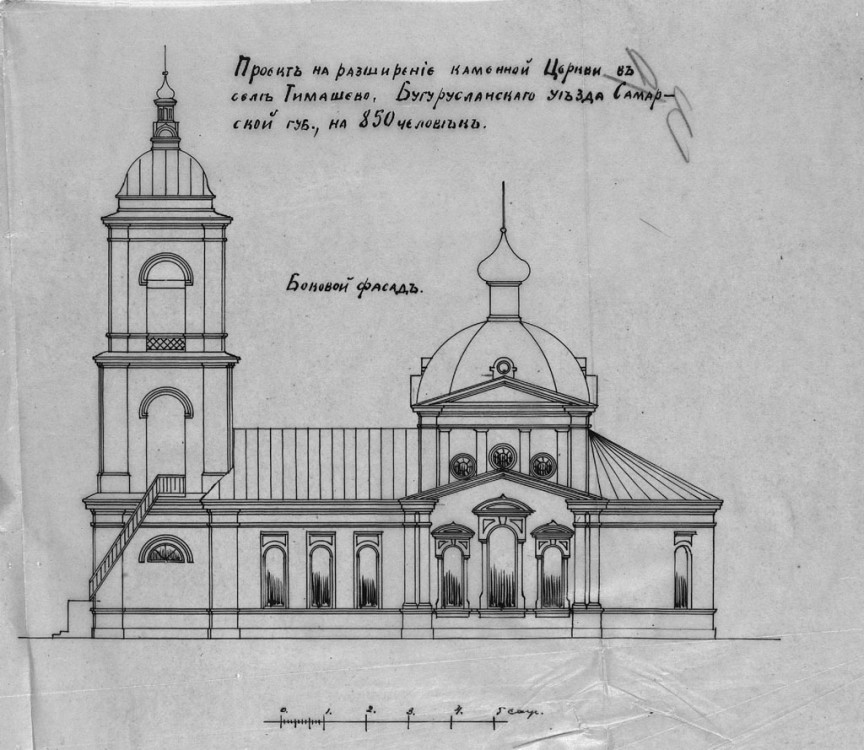 Проектъ на разширеніе каменной Церкви въ
селѣ Тимашево, Бугурусланскаго уѣзда Самар-
ской губ., на 850 человѣкъ.
Боковой фасадъ.
0. 1. 2. 3. 4. 5 саж.